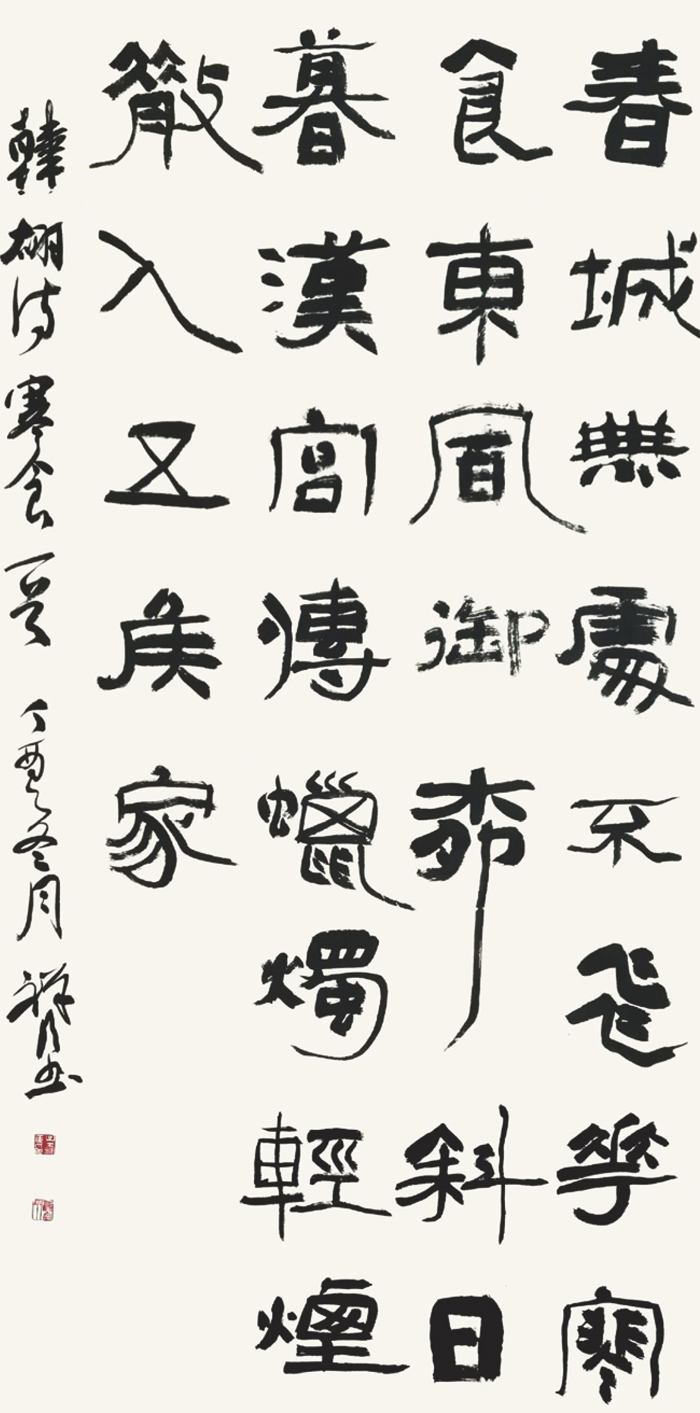 春城無處不飛花寒
食東風御柳斜日
暮漢宮傳蠟燭輕煙
散入五侯家
韓翃詩寒食一首 丁酉之冬月 祥書